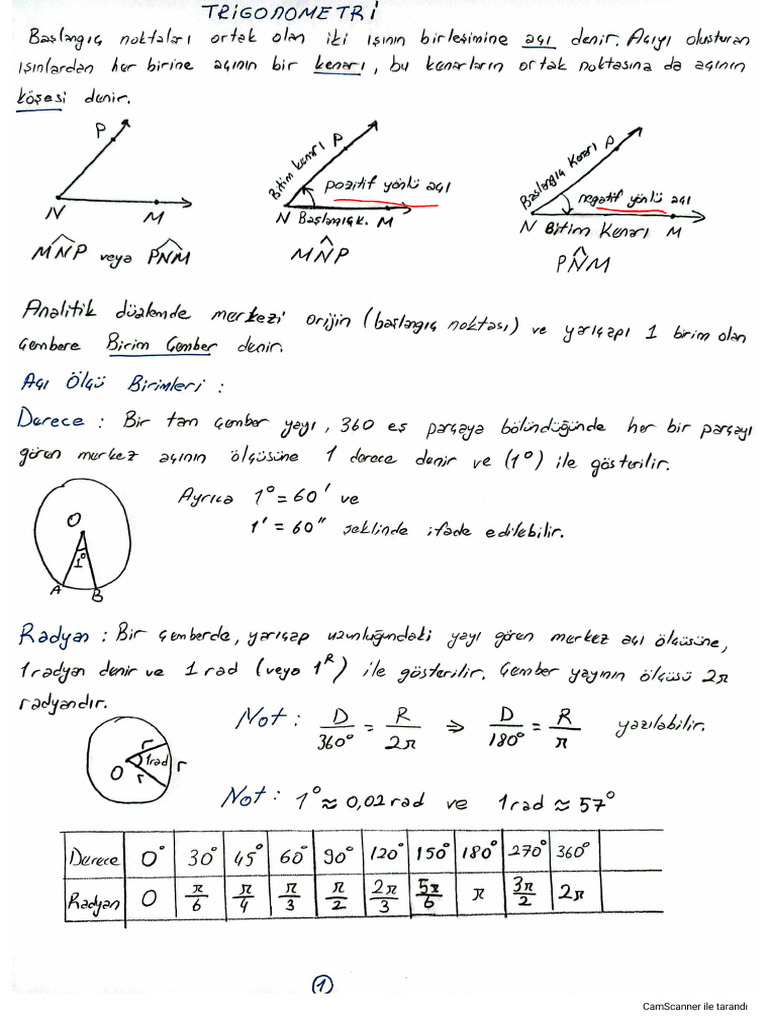 TRİGONOMETRİ
Başlangıç noktaları ortak olan iki ışının birleşimine açı denir. Açıyı oluşturan
ışınlardan her birine açının bir kenarı, bu kenarların ortak noktasına da açının
köşesi denir.
P
N M
MNP veya PNM
Bitim kenarı P
pozitif yönlü açı
N Başlangıç k. M
MNP
Başlangıç Kenarı P
negatif yönlü açı
N Bitim Kenarı M
PNM
Analitik düzlemde merkezi orijin (başlangıç noktası) ve yarıçapı 1 birim olan
çembere Birim Çember denir.
Açı Ölçü Birimleri :
Derece : Bir tam çember yayı, 360 eş parçaya bölündüğünde her bir parçayı
gören merkez açının ölçüsüne 1 derece denir ve (1°) ile gösterilir.
Ayrıca 1° = 60' ve
1' = 60" şeklinde ifade edilebilir.
O
1°
A B
Radyan : Bir çemberde, yarıçap uzunluğundaki yayı gören merkez açı ölçüsüne,
1 radyan denir ve 1 rad (veya 1ᴿ) ile gösterilir. Çember yayının ölçüsü 2π
radyandır.
O r 1rad r r
Not : D/360° = R/2π ⇒ D/180° = R/π yazılabilir.
Not : 1° ≈ 0,02 rad ve 1 rad ≈ 57°
Derece 0° 30° 45° 60° 90° 120° 150° 180° 270° 360°
Radyan 0 π/6 π/4 π/3 π/2 2π/3 5π/6 π 3π/2 2π
1
CamScanner ile tarandı